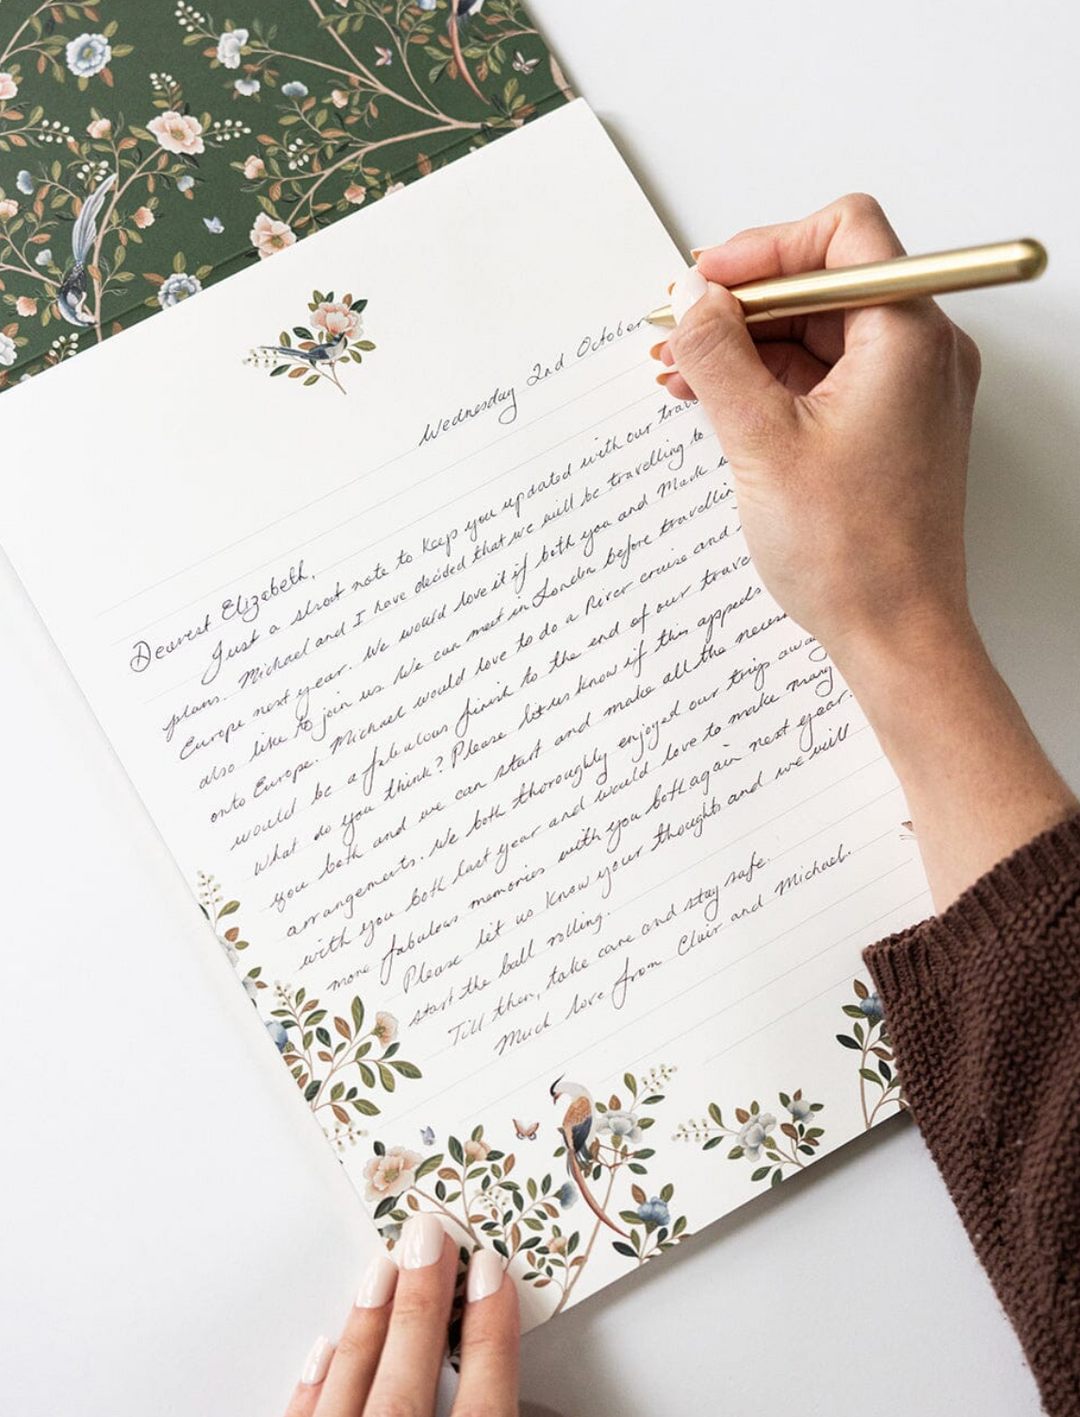 Wednesday 2nd October
Dearest Elizabeth,
Just a short note to keep you updated with our
plans. Michael and I have decided that we will be travelling to
Europe next year. We would love it if both you and Mark
also like to join us. We can meet in London before
onto Europe. Michael would love to do a River cruise and
would be a fabulous finish to the end of our
What do you think? Please let us know if this appeals
you both and we can start and make all the
arrangements. We both thoroughly enjoyed our trips away
with you both last year and would love to make many
more fabulous memories with you both again next year.
Please let us know your thoughts and we will
start the ball rolling.
Till then, take care and stay safe.
Much love from Clair and Michael.